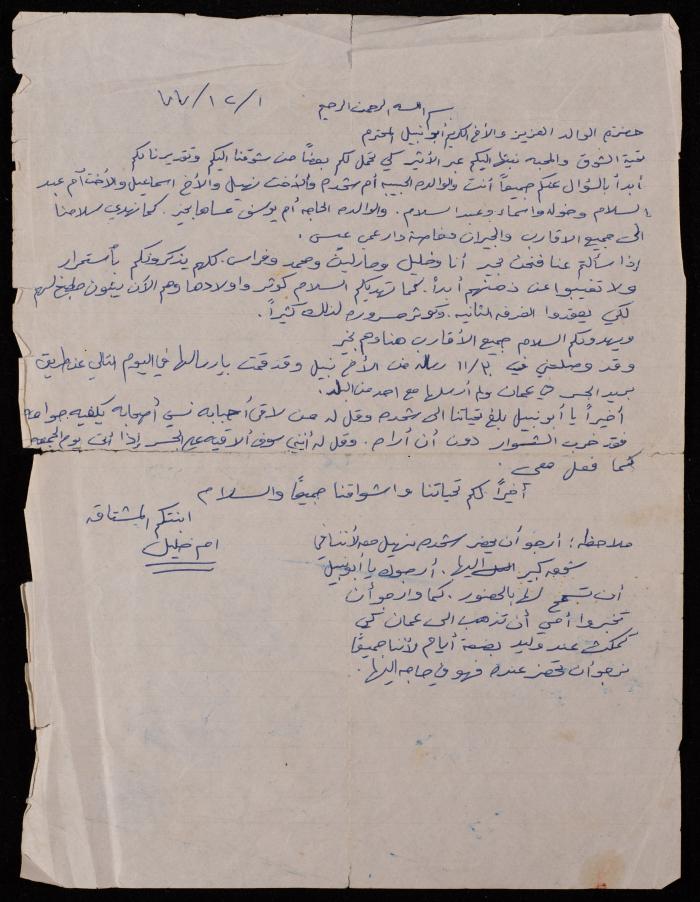 ٧٧/١٢/١
بسم الله الرحمن الرحيم
حضرة الوالد العزيز والأخ الكريم أبو نبيل المحترم
تحية الشوق والمحبه نبعثها اليكم عبر الأثير كي تحمل لكم بعضاً من شوقنا اليكم وتقديرنا لكم
أبدأ بالسؤال عنكم جميعاً أنت والوالده الحبيبه أم شحده والأخت نهيل والأخ اسماعيل والأخت أم عبد
السلام وخوله واسماء وعبد السلام. والوالده الحاجه أم يوسف عساها بخير. كما نهدي سلامنا
الى جميع الأقارب والجيران وخاصة دار عمي عيسى.
إذا سألتم عنا فنحن بخير أنا وخليل ومارلين ومحمد وفراس. كلهم يذكرونكم بأستمرار
ولا تغيبوا عن ذهنهم أبداً. كما تهديكم السلام كوثر واولادها وهم الآن يبنون مطبخ لهم
لكي يعقدوا الغرفه الثانيه. وكوثر مسروره لذلك كثيراً.
ويهدونكم السلام جميع الأقارب هنا وهم بخير
وقد وصلني في ١١/٣٠ رساله من الأخ نبيل وقد قمت بإرسالها في اليوم التالي عن طريق
بريد الجسر عمان ولم أرسلها مع احد من البلد.
أخيراً يا أبو نبيل بلغ تحياتنا الى شحده وقل له من لاقى أحبابه نسي أصحابه يكفيه
فقد خرب المشوار دون أن أراه. وقل له أنني سوف ألاقيه على الجسر إذا أتى يوم الجمعه
كما فعل معي.
أخيراً لكم تحياتنا واشواقنا جميعاً والسلام
ابنتكم المشتاقه
ام خليل
ملاحظه: أرجو أن يحضر شحده نهيل معه لأننا في
شوق كبير اليها. أرجوك يا أبو نبيل
أن تسمح لها بالحضور. كما وارجو أن
تخبروا أمي أن تذهب الى عمان كي
تمكث عند وليد بضعة أيام لأننا جميعاً
نرجو أن تحضر عنده فهو في حاجه اليها.